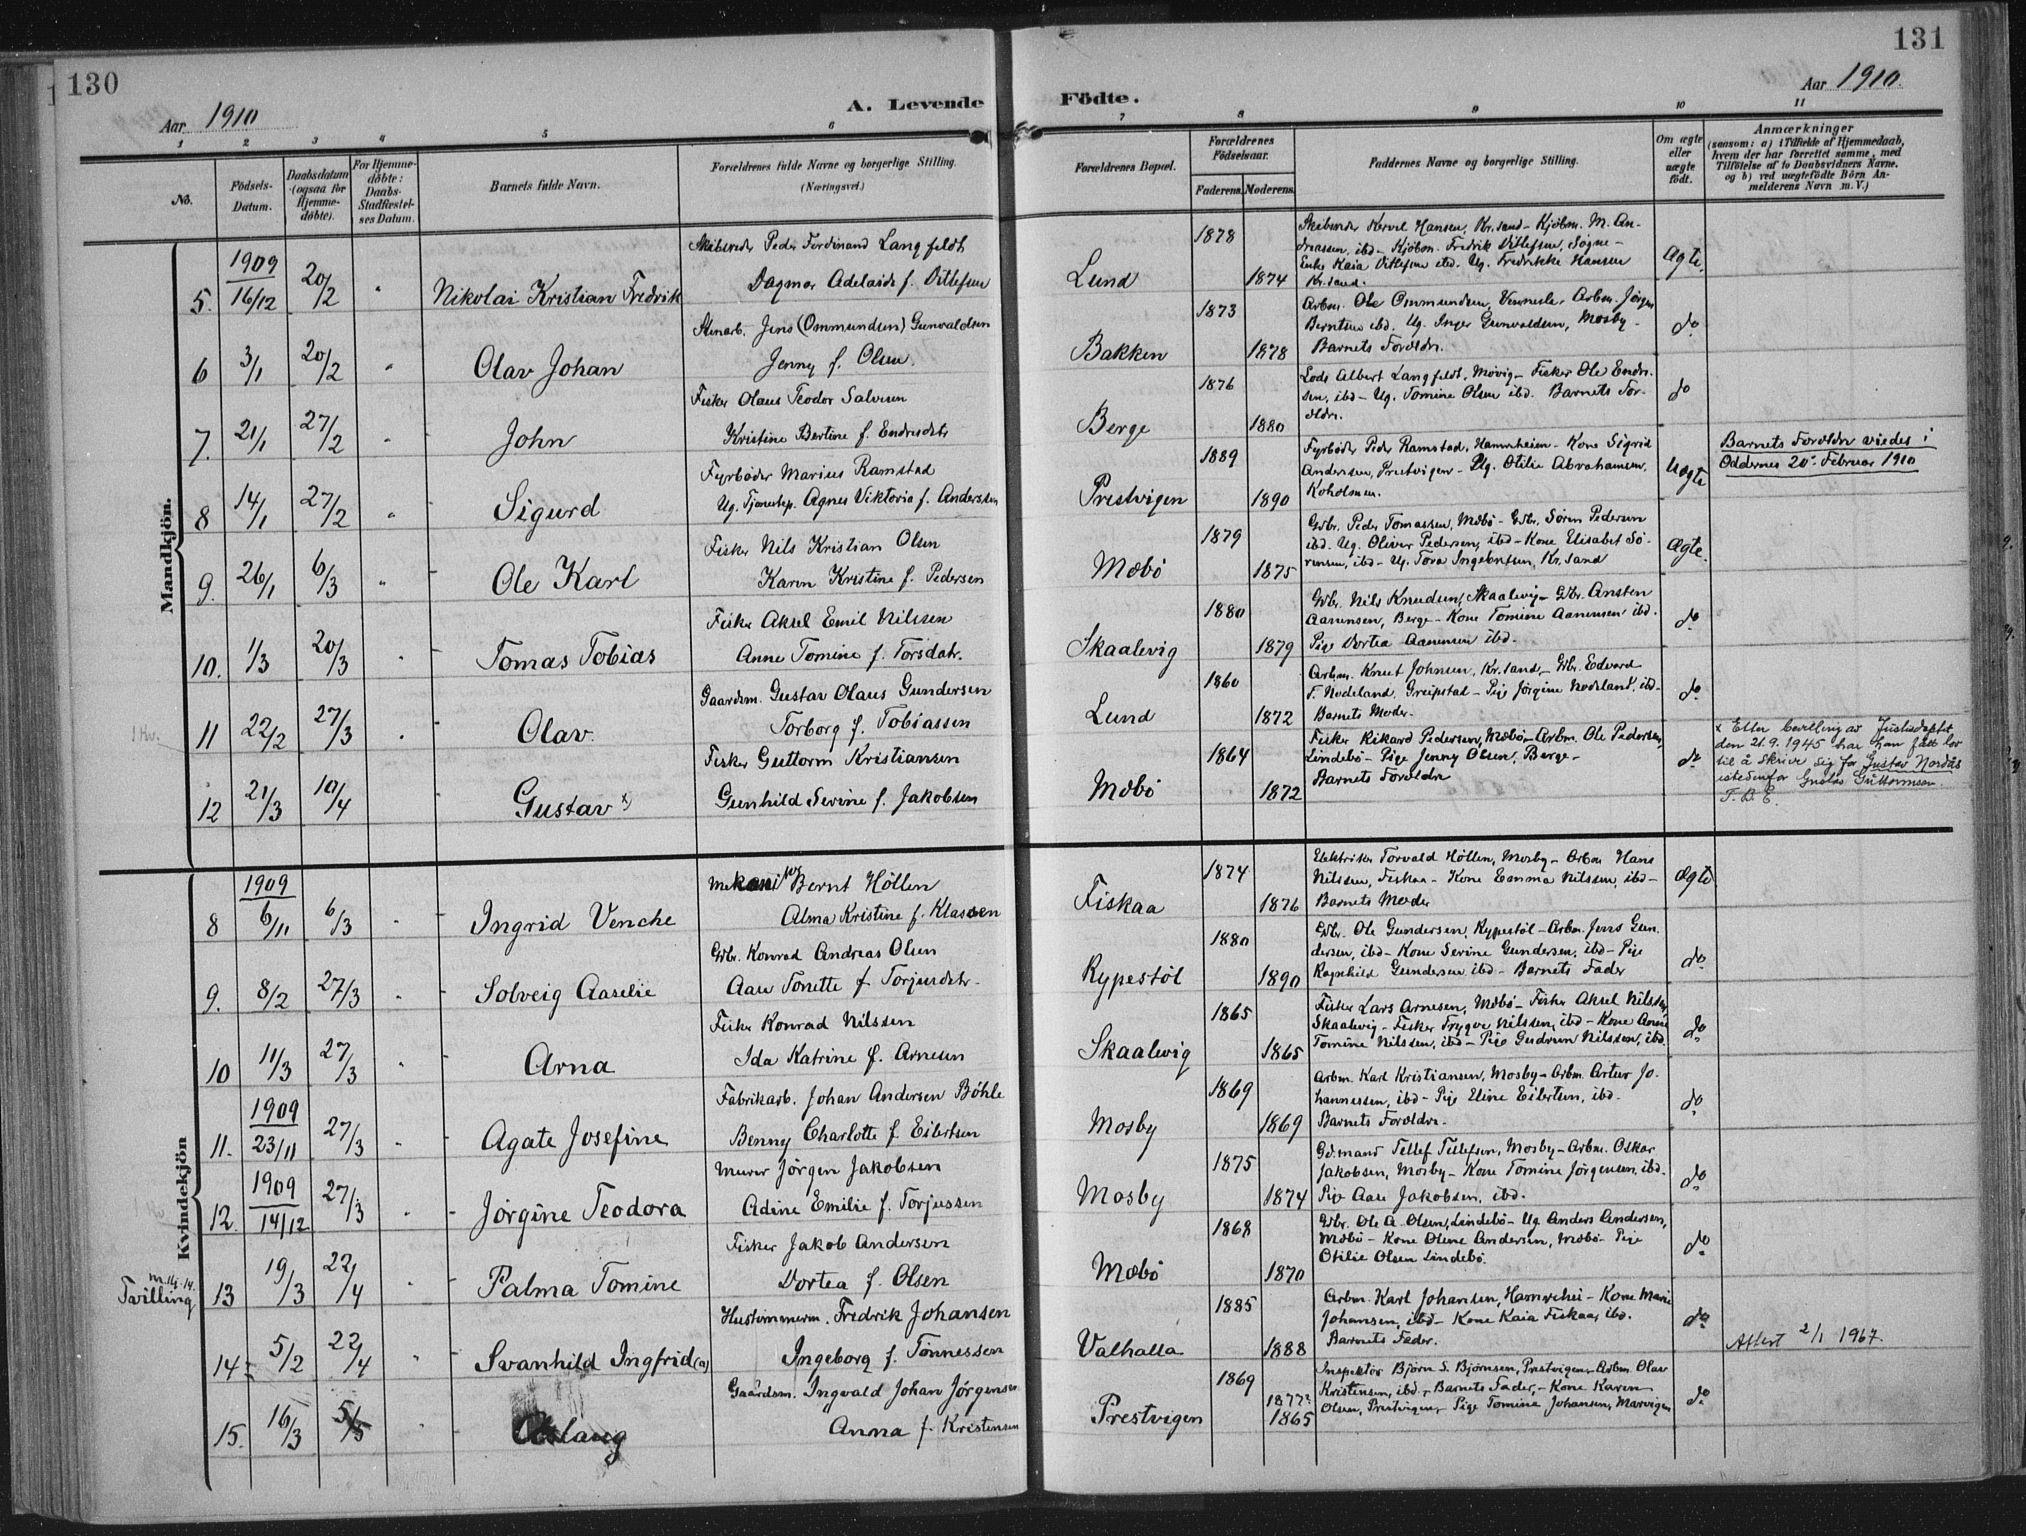 130
Aar 1910
A. Levende
1 2 3 4 5 6
No.
Födsels-Datum.
Daabsdatum (ogsaa for Hjemme-döbte).
For Hjemme-döbte: Daabs-Stadfæstel-ses Datum.
Barnets fulde Navn.
Forældrenes fulde Navne og borgerlige Stilling.
(Næringsvei.)
Mandkjön.
5. 1909 16/12 20/2 " Nikolai Kristian Fredrik
Skibsreder Peder Ferdinand Langfeldt
Dagmar Adelaide f. Ditlefsen
6 3/1 20/2 " Olav Johan
Stenarb. Jens (Ommundsen) Gunvaldsen
Jenny f. Olsen.
7. 21/1 27/2 " John
Fisker Olaus Teodor Salvesen
Kristine Bertine f. Endresdtr
8 14/1 27/2 " Sigurd
Fyrbøder Marius Ramstad
Ug. Tjenestep. Agnes Viktoria f. Andersen
9. 26/1 6/3 " Ole Karl
Fisker Nils Kristian Olsen
Karen Kristine f. Pedersen
10. 1/3 20/3 " Tomas Tobias
Fisker Aksel Emil Nilssen
Anne Tomine f. Torsdatr.
11 22/2 27/3 " Olav.
Gaardsm. Gustav Olaus Gundersen
Torborg f. Tobiassen
12 21/3 10/4 Gustav x)
Fisker Guttorm Kristiansen
Gunhild Sevine f. Jakobsen
Kvindekjön
8 1909 6/11 6/3 " Ingrid Venche
Mekaniker Bernt Höllen
Alma Kristine f. Klassen
9. 8/2 27/3 " Solveig Aaselie
Gbr. Konrad Andreas Olsen
Aase Tonette f Torjusdtr.
10 11/3 27/3 " Arna
Fisker Konrad Nilssen
Ida Katrine f. Arnesen
11. 1909 23/11 27/3 " Agate Josefine
Fabrikarb. Johan Andersen Böhle
Benny Charlotte f Eilertsen
12. 1909 14/12 27/3 " Jörgine Teodora
Murer Jörgen Jakobsen
Adine Emilie f. Torjussen
Tvilling
13 19/3 22/4 " Palma Tomine
Fisker Jakob Andersen
Dortea f. Olsen
14 5/2 22/4 " Svanhild Ingfrid (a)
Hustømmerm. Fredrik Johansen
Ingeborg f. Tönnessen
15. 16/3 5/5 " Aslaug
Gaardsm. Ingvald Johan Jörgensen
Anna f. Kristensen
131
Födte.
Aar 1910.
7 8 9 10 11
Forældrenes Bopæl.
Forældrenes Födselsaar.
Faderens. Moderens.
Faddernes Navne og borgerlige Stilling.
Om ægte eller uægte födt.
Anmærkninger
(saasom: a) i Tilfælde af Hjemmedaab,
hvem der har forrettet samme, med
Tilföielse af to Daabsvidners Navne.
og b) ved uægtefödte Börn An-
melderens Navn m. V.)
Lund 1878 1874
Skibsreder Kervel Hansen, Kr.sand - Kjøbm. M. An-
dreassen, ibd - Kjøbm. Fredrik Ditlefsen, Søgne -
Enke Kaia Ditlefsen ibd. Ug. Fredrikke Hansen
Kr.sand.
Ægte.
Bakken 1873 1878
Arbm. Ole Ommundsen, Vennesla. Arbm. Jörgen
Berntsen ibd. Ug. Inger Gunvaldsen, Mosby -
Barnets Forældre.
do
Berge 1876 1880
Lods Albert Langfeldt, Møvig - Fisker Ole Endre-
sen, ibd - Ug. Tomine Olsen ibd. Barnets For-
ældre.
do
Prestvigen 1889 1890
Fyrbøder Peder Ramstad, Hamreheien - Kone Sigrid
Andersen, Prestvigen - Ug. Otilie Abrahamsen,
Koholmen.
Uægte
Barnets Forældre viedes i
Oddernes 20de Februar 1910
Mæbö 1879 1875
Gbr. Peder Tomassen, Mæbö - Gbr. Sören Pedersen
ibd. Ug. Oliver Pedersen, ibd - Kone Elisabet Sö-
rensen, ibd - Ug. Tora Ingebretsen, Kr.sand
Ægte.
Skaalevig 1880 1879
Gbr. Nils Knudsen, Skaalevig - Gbr. Ansten
Aanensen, Berge - Kone Tomine Aanensen ibd.
Pige Dortea Aanensen ibd.
do
Lund 1860 1872
Arbm. Knut Johnsen, Kr.sand, - Gbr. Edvard
T. Nodeland, Greipstad - Pige Jörgine Nodeland, ibd -
Barnets Moder.
do
Mæbö 1864 1872
Fisker Rikard Pedersen, Mæbö - Arbm. Ole Pedersen,
Lindebö - Pige Jenny Olsen, Berge -
Barnets Forældre
do
x Etter bevilling av Justisdeptet
den 21.9.1945 har han fått lov
til å skrive sig for Gustav Nordås
istedenfor Gustav Guttormsen.
T. B. E.
Fiskaa 1874 1876
Elektriker Torvald Höllen, Mosby - Arbm Hans
Nilssen, Fiskaa - Kone Emma Nilssen, ibd -
Barnets Moder
Ægte
Rypestöl 1880 1890
Gbr. Ole Gundersen, Rypestöl - Arbm. Jens Gun-
dersen, ibd - Kone Sevine Gundersen, ibd - Pige
Ragnhild Gundersen ibd - Barnets Fader
do
Skaalevig 1865 1865
Fisker Lars Arnesen, Mæbö - Fisker Aksel Nilssen,
Skaalevig - Fisker Trygve Nilssen, ibd - Kone Anne
Tomine Nilssen, ibd - Pige Gudrun Nilssen, ibd.
do
Mosby 1869 1869
Arbm. Karl Kristiansen, Mosby - Arbm. Artur Jo-
hannessen, ibd - Pige Eline Eilertsen, ibd.
Barnets Forældre.
do
Mosby 1875 1874
Gd.mand Tellef Tellefsen, Mosby - Arbm. Oskar
Jakobsen, Mosby - Kone Tomine Jörgensen, ibd -
Pige Aase Jakobsen, ibd.
do
Mæbö 1868 1870
Gbr. Ole A. Olsen, Lindebö - Ug Anders Andersen,
Mæbö - Kone Olene Andersen, Mæbö - Pige
Otilie Olsen Lindebö.
do
Valhalla 1885 1888
Arbm. Karl Johansen, Hamrehei - Kone Marie
Johansen, ibd - Kone Kaia Fiskaa, ibd.
Barnets Fader.
do
Attest 2/1 1967.
Prestvigen 1869 1877? 1865
Inspektör Björn S. Björnsen, Prestvigen - Arbm. Olav
Kristensen, ibd. - Barnets Fader, - Kone Karen
Olsen, Prestvigen, - Pige Tomine Johansen, Marvigen
do